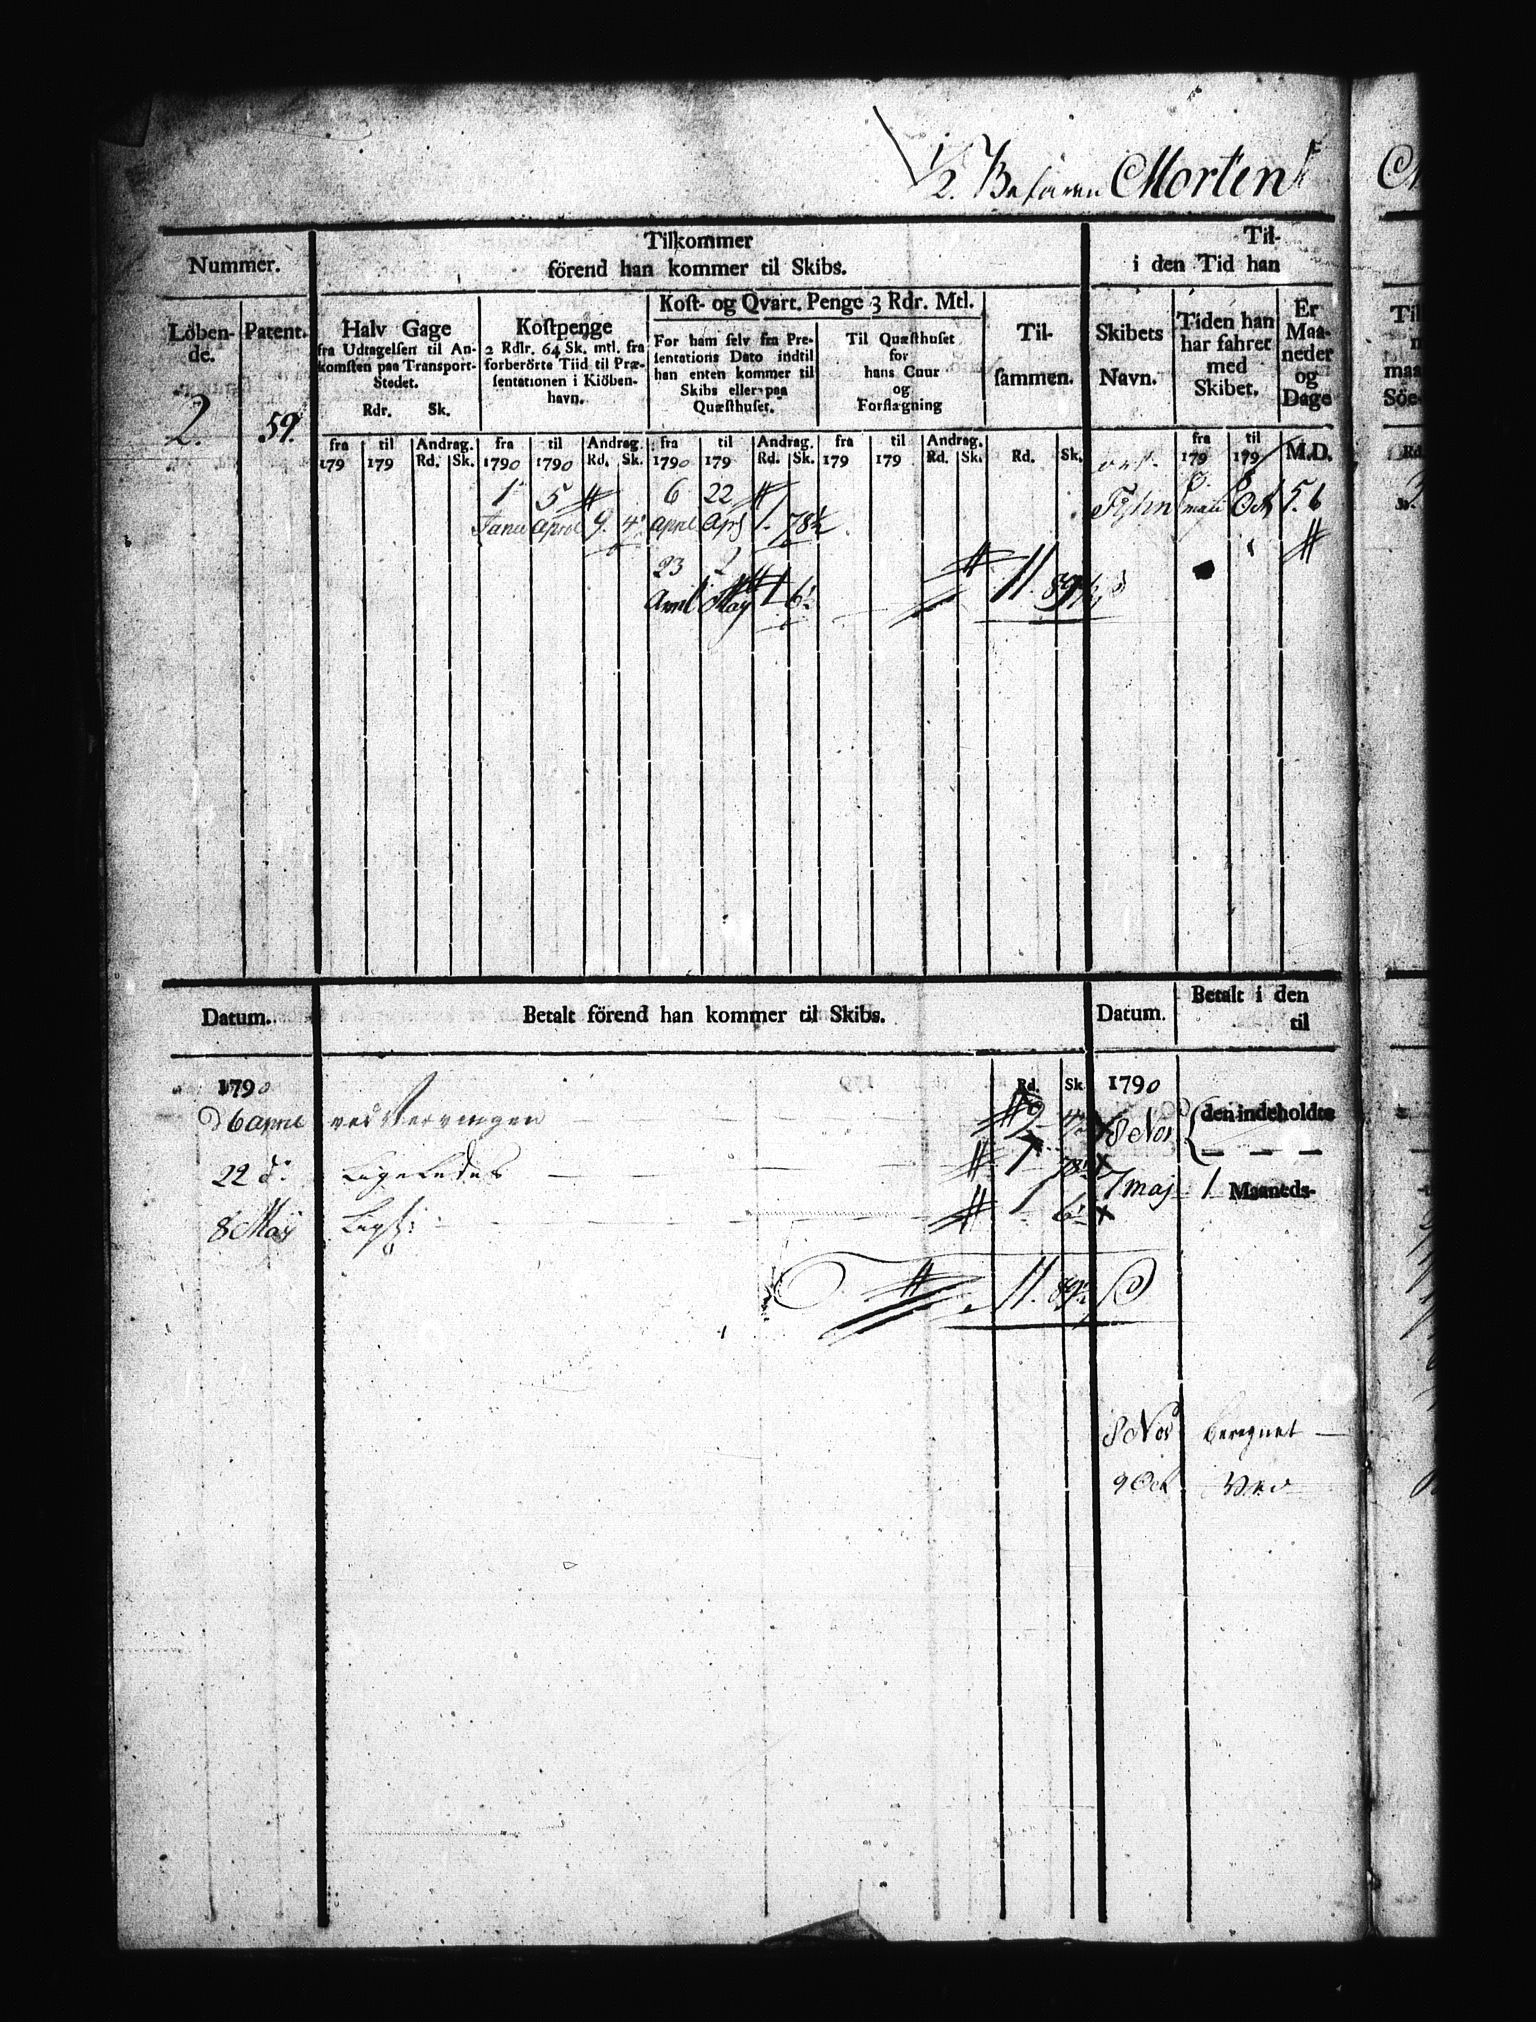 1/2 Befaren Morten
Tilkommer
förend han kommer til Skibs.
Til-
i den Tid han
Nummer.
Löben-
de.
Patent.
Halv Gage
fra Udtagelsen til An-
komsten paa Transport-
Stedet.
Rdr. Sk.
Kostpenge
2 Rdlr. 64 Sk. mtl. fra
forberörte Tiid til Præ-
sentationen i Kiöben-
havn.
Kost- og Qvart. Penge 3 Rdr. Mtl.
For ham selv fra Pre-
sentations Dato indtil
han enten kommer til
Skibs eller paa
Quæsthuset.
Til Quæsthuset
for
hans Cuur
og
Forflægning
Til-
sammen.
Skibets
Navn.
Tiden han
har fahret
med
Skibet.
Er
Maa-
neder
og
Dage
2. 59.
fra til Andrag. fra til Andrag. fra til Andrag. fra til Andrag. fra til
179 179 Rd. Sk. 1790 1790 Rd. Sk. 1790 179 Rd. Sk. 179 179 Rd. Sk. Rd. Sk. 179 179 M.D.
1 5 6 22
Janu April 9. 4 April Apl 1. 78½ Fyhn maii Oct 5. 6
23 2
April May 1 6½ 11. 89
Datum.
Betalt förend han kommer til Skibs.
Datum.
Betalt i den
til
1790 Rd. Sk. 1790
6 April ved Hervingen 9 8 Nov den indeholdte
22 do Ligeledes 1 7 maj 1 Maaneds-
8 May Ligl: 1 6½
11. 89½
8 Nov beregnet
9 Oct Ved